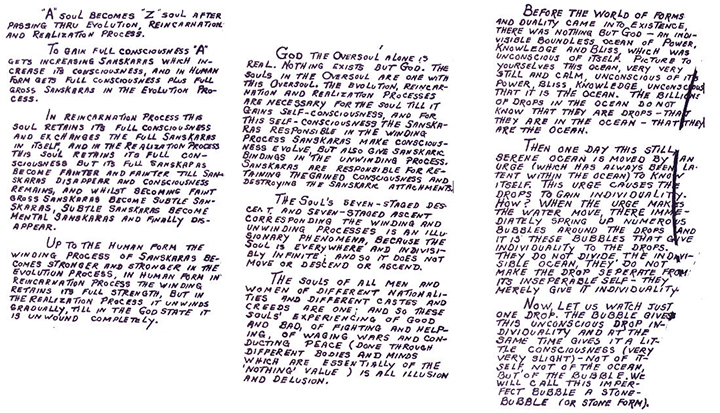 "A" SOUL BECOMES "Z" SOUL AFTER
PASSING THRU EVOLUTION, REINCARNATION
AND REALIZATION PROCESS.
TO GAIN FULL CONSCIOUSNESS "A"
GETS INCREASING SANSKARAS WHICH IN-
CREASE ITS CONSCIOUSNESS, AND IN HUMAN
FORM GETS FULL CONSCIOUSNESS PLUS FULL
GROSS SANSKARAS IN THE EVOLUTION PRO-
CESS.
IN REINCARNATION PROCESS THIS
SOUL RETAINS ITS FULL CONSCIOUSNESS
AND EXCHANGES THE FULL SANSKARAS
IN ITSELF, AND IN THE REALIZATION PROCESS
THIS SOUL RETAINS ITS FULL CON-
SCIOUSNESS BUT ITS FULL SANSKARAS
BECOME FAINTER AND FAINTER TILL SAN-
SKARAS DISAPPEAR AND CONSCIOUSNESS
REMAINS, AND WHILST BECOMING FAINT
GROSS SANSKARAS BECOME SUBTLE SAN-
SKARAS, SUBTLE SANSKARAS BECOME
MENTAL SANSKARAS AND FINALLY DIS-
APPEAR.
UP TO THE HUMAN FORM THE
WINDING PROCESS OF SANSKARAS BE-
COMES STRONGER AND STRONGER IN THE
EVOLUTION PROCESS. IN HUMAN FORM IN
REINCARNATION PROCESS THE WINDING
RETAINS ITS FULL STRENGTH, BUT IN
THE REALIZATION PROCESS IT UNWINDS
GRADUALLY, TILL IN THE GOD STATE IT
IS UNWOUND COMPLETELY.
GOD THE OVERSOUL ALONE IS
REAL. NOTHING EXISTS BUT GOD. THE
SOULS IN THE OVERSOUL ARE ONE WITH
THIS OVERSOUL. THE EVOLUTION, REINCAR-
NATION AND REALIZATION PROCESSES
ARE NECESSARY FOR THE SOUL TILL IT
GAINS SELF-CONSCIOUSNESS, AND FOR
THIS SELF-CONSCIOUSNESS THE SANSKA-
RAS RESPONSIBLE IN THE WINDING
PROCESS SANSKARAS MAKE CONSCIOUS-
NESS EVOLVE, BUT ALSO GIVE SANSKARIC
BINDINGS IN THE UNWINDING PROCESS.
SANSKARAS ARE RESPONSIBLE FOR RE-
TAINING THE GAINED CONSCIOUSNESS AND
DESTROYING THE SANSKARIC ATTACHMENTS.
THE SOUL'S SEVEN-STAGED DES-
CENT, AND SEVEN-STAGED ASCENT
CORRESPONDING THE WINDING AND
UNWINDING PROCESSES IS AN ILLU-
SIONARY PHENOMENA, BECAUSE THE
SOUL IS EVERYWHERE AND INDIVISI-
BLY INFINITE; AND SO IT DOES NOT
MOVE OR DESCEND OR ASCEND.
THE SOULS OF ALL MEN AND
WOMEN OF DIFFERENT NATIONALI-
TIES AND DIFFERENT CASTES AND
CREEDS ARE ONE; AND SO THESE
SOULS' EXPERIENCING OF GOOD
AND BAD, OF FIGHTING AND HELP-
ING, OF WAGING WARS AND CON-
DUCTING PEACE (DONE THROUGH
DIFFERENT BODIES AND MINDS
WHICH ARE ESSENTIALLY OF THE
'NOTHING' VALUE) IS ALL ILLUSION
AND DELUSION.
BEFORE THE WORLD OF FORMS
AND DUALITY CAME INTO EXISTENCE,
THERE WAS NOTHING BUT GOD - AN INDI-
VISIBLE BOUNDLESS OCEAN OF POWER,
KNOWLEDGE AND BLISS, WHICH WAS
UNCONSCIOUS OF ITSELF. PICTURE TO
YOURSELVES THIS OCEAN, VERY VERY
STILL AND CALM, UNCONSCIOUS OF ITS
POWER, BLISS, KNOWLEDGE, UNCONSCIOUS
THAT IT IS THE OCEAN. THE BILLIONS
OF DROPS IN THE OCEAN DO NOT
KNOW THAT THEY ARE DROPS - THAT
THEY ARE IN THE OCEAN - THAT THEY
ARE THE OCEAN.
THEN ONE DAY THIS STILL
SERENE OCEAN IS MOVED BY AN
URGE (WHICH HAS ALWAYS BEEN LA-
TENT WITHIN THE OCEAN) TO KNOW
ITSELF. THIS URGE CAUSES THE
DROPS TO GAIN INDIVIDUALITY.
HOW? WHEN THE URGE MAKES
THE WATER MOVE, THERE IMME-
DIATELY SPRING UP NUMEROUS
BUBBLES AROUND THE DROPS AND
IT IS THESE BUBBLES THAT GIVE
INDIVIDUALITY TO THE DROPS.
THEY DO NOT DIVIDE THE INDIVI-
SIBLE OCEAN, THEY DO NOT
MAKE THE DROP SEPERATE FROM
ITS INSEPERABLE SELF - THEY
MERELY GIVE IT INDIVIDUALITY
NOW, LET US WATCH JUST
ONE DROP. THE BUBBLE GIVES
THIS UNCONSCIOUS DROP IN-
DIVIDUALITY AND AT THE
SAME TIME GIVES IT A LIT-
TLE CONSCIOUSNESS (VERY
VERY SLIGHT) - NOT OF IT-
SELF, NOT OF THE OCEAN,
BUT OF THE BUBBLE. WE
WILL CALL THIS IMPER-
FECT BUBBLE A STONE-
BUBBLE (OR STONE FORM).